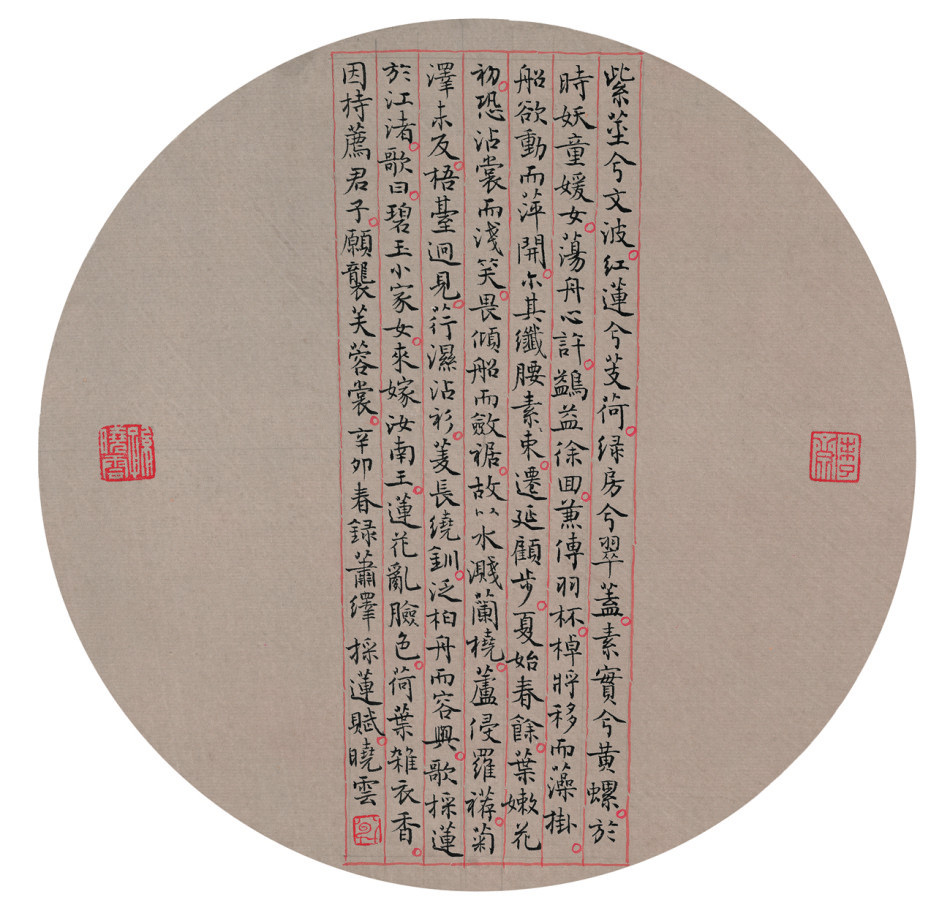 紫莖兮文波紅蓮兮芰荷绿房兮翠蓋素實兮黄螺於
時妖童媛女蕩舟心許鷁益徐囬兼傳羽杯棹將移而藻掛
船欲動而萍開尒其纖腰素束遷延顧步夏始春餘葉嫩花
初恐沾裳而淺笑畏傾船而斂裾故以水濺蘭橈蘆侵羅䙖菊
澤未反梧臺迥見荇濕沾衫菱長繞釧泛柏舟而容興歌採蓮
於江渚歌曰碧玉小家女來嫁汝南王蓮花亂臉色荷葉雜衣香
因持薦君子願襲芙蓉裳辛卯春録蕭繹採蓮賦曉雲